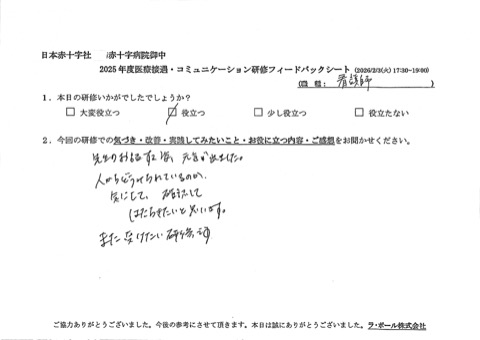 日本赤十字社 赤十字病院御中
2025年度医療接遇・コミュニケーション研修フィードバックシート (2026/2/3(火) 17:30-19:00)
(職 種: 看護師 )
1．本日の研修いかがでしたでしょうか？
□ 大変役立つ ☑ 役立つ □ 少し役立つ □ 役立たない
2．今回の研修での気づき・改善・実践してみたいこと・お役に立つ内容・ご感想をお聞かせください。
先生のお話す 元気が出ました。
人からどうみられているのか、
気にして、確認して
はたらきたいと思います。
また受けたい研修
ご協力ありがとうございました。今後の参考にさせて頂きます。本日は誠にありがとうございました。ラ・ポール株式会社